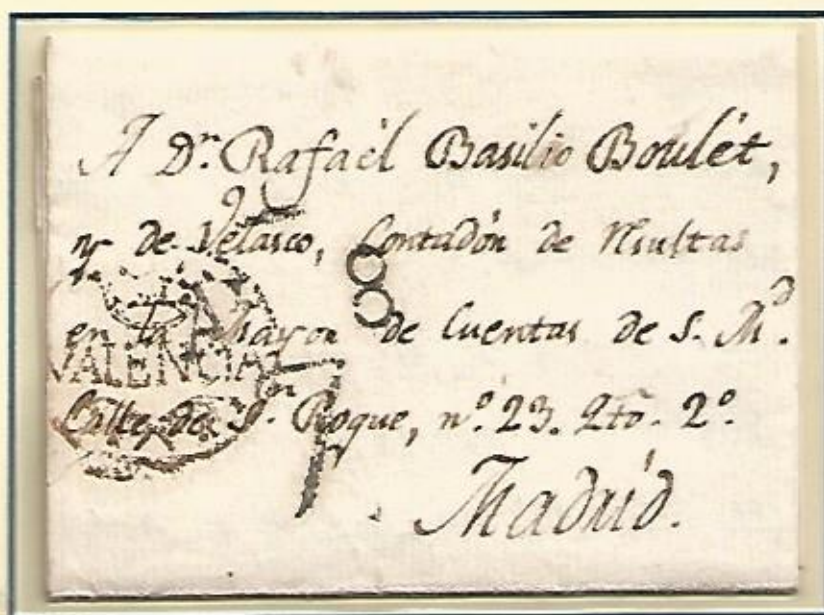 A Dn. Rafaél Basilio Boulét,
de Velasco, Contadór de Resultas
en la Mayor de Cuentas de S. Md.
VALENCIA
Calle de Sn. Roque, nº. 23. Qto. 2º.
Madrid.